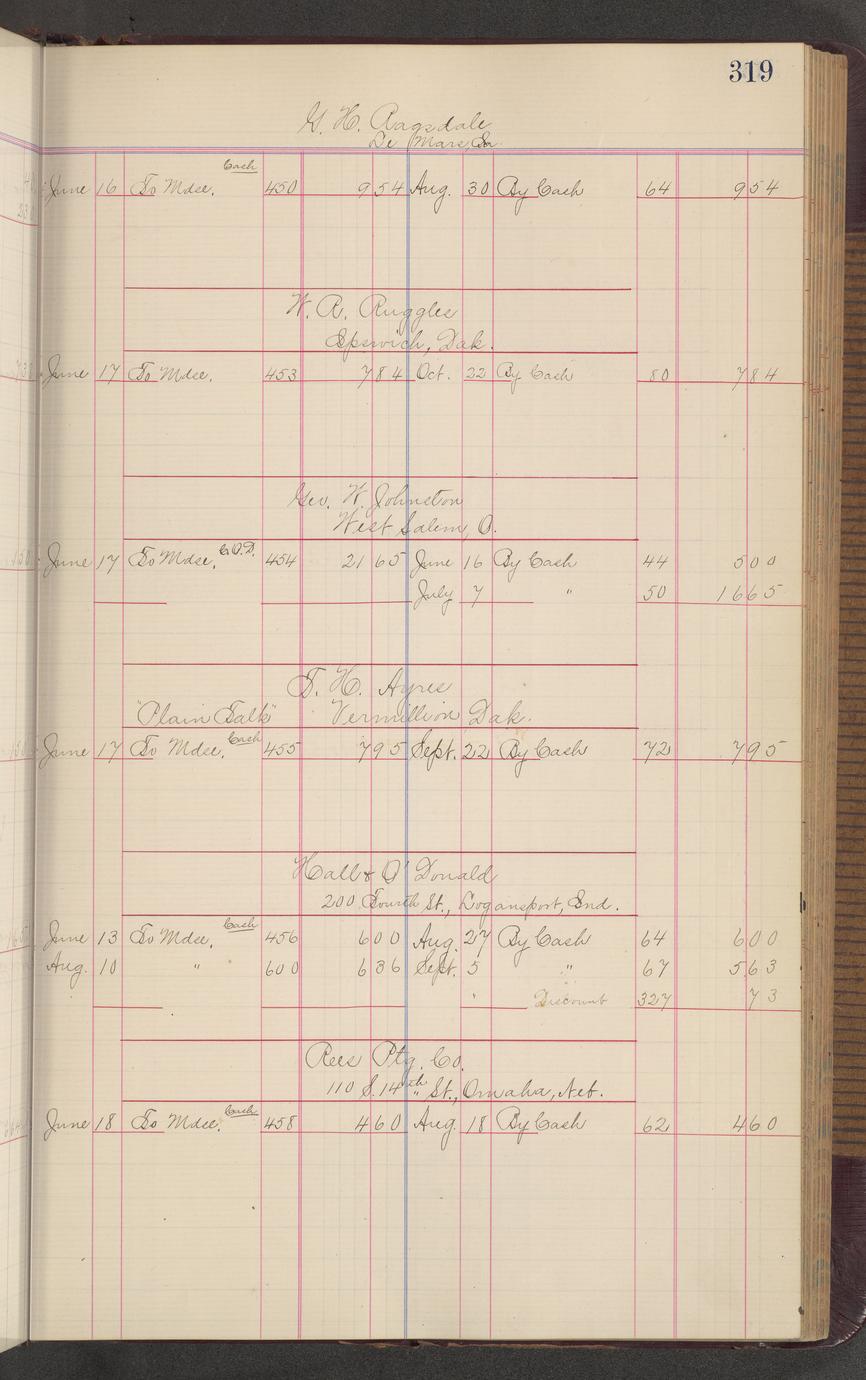 319
G. H. Ragsdale
Le Mars, Ia.
June 16 To Mdse. Cash 450 9 54 Aug. 30 By Cash 64 9 54
W. R. Ruggles
Ipswich, Dak.
June 17 To Mdse. 453 7 84 Oct. 22 By Cash 80 7 84
Geo. W. Johnston
West Salem, O.
June 17 To Mdse. C.O.D. 454 21 65 June 16 By Cash 44 5 00
July 7 " 50 16 65
T. H. Ayres
"Plain Talk" Vermillion Dak.
June 17 To Mdse. Cash 455 7 95 Sept. 22 By Cash 72 7 95
Hall & O'Donald
200 Fourth St., Logansport, Ind.
June 13 To Mdse. Cash 456 6 00 Aug. 27 By Cash 64 6 00
Aug. 10 " 600 6 36 Sept. 5 " 67 5 63
" Discount 327 73
Rees Ptg. Co.
110 S. 14th St., Omaha, Neb.
June 18 To Mdse. Cash 458 4 60 Aug. 18 By Cash 62 4 60